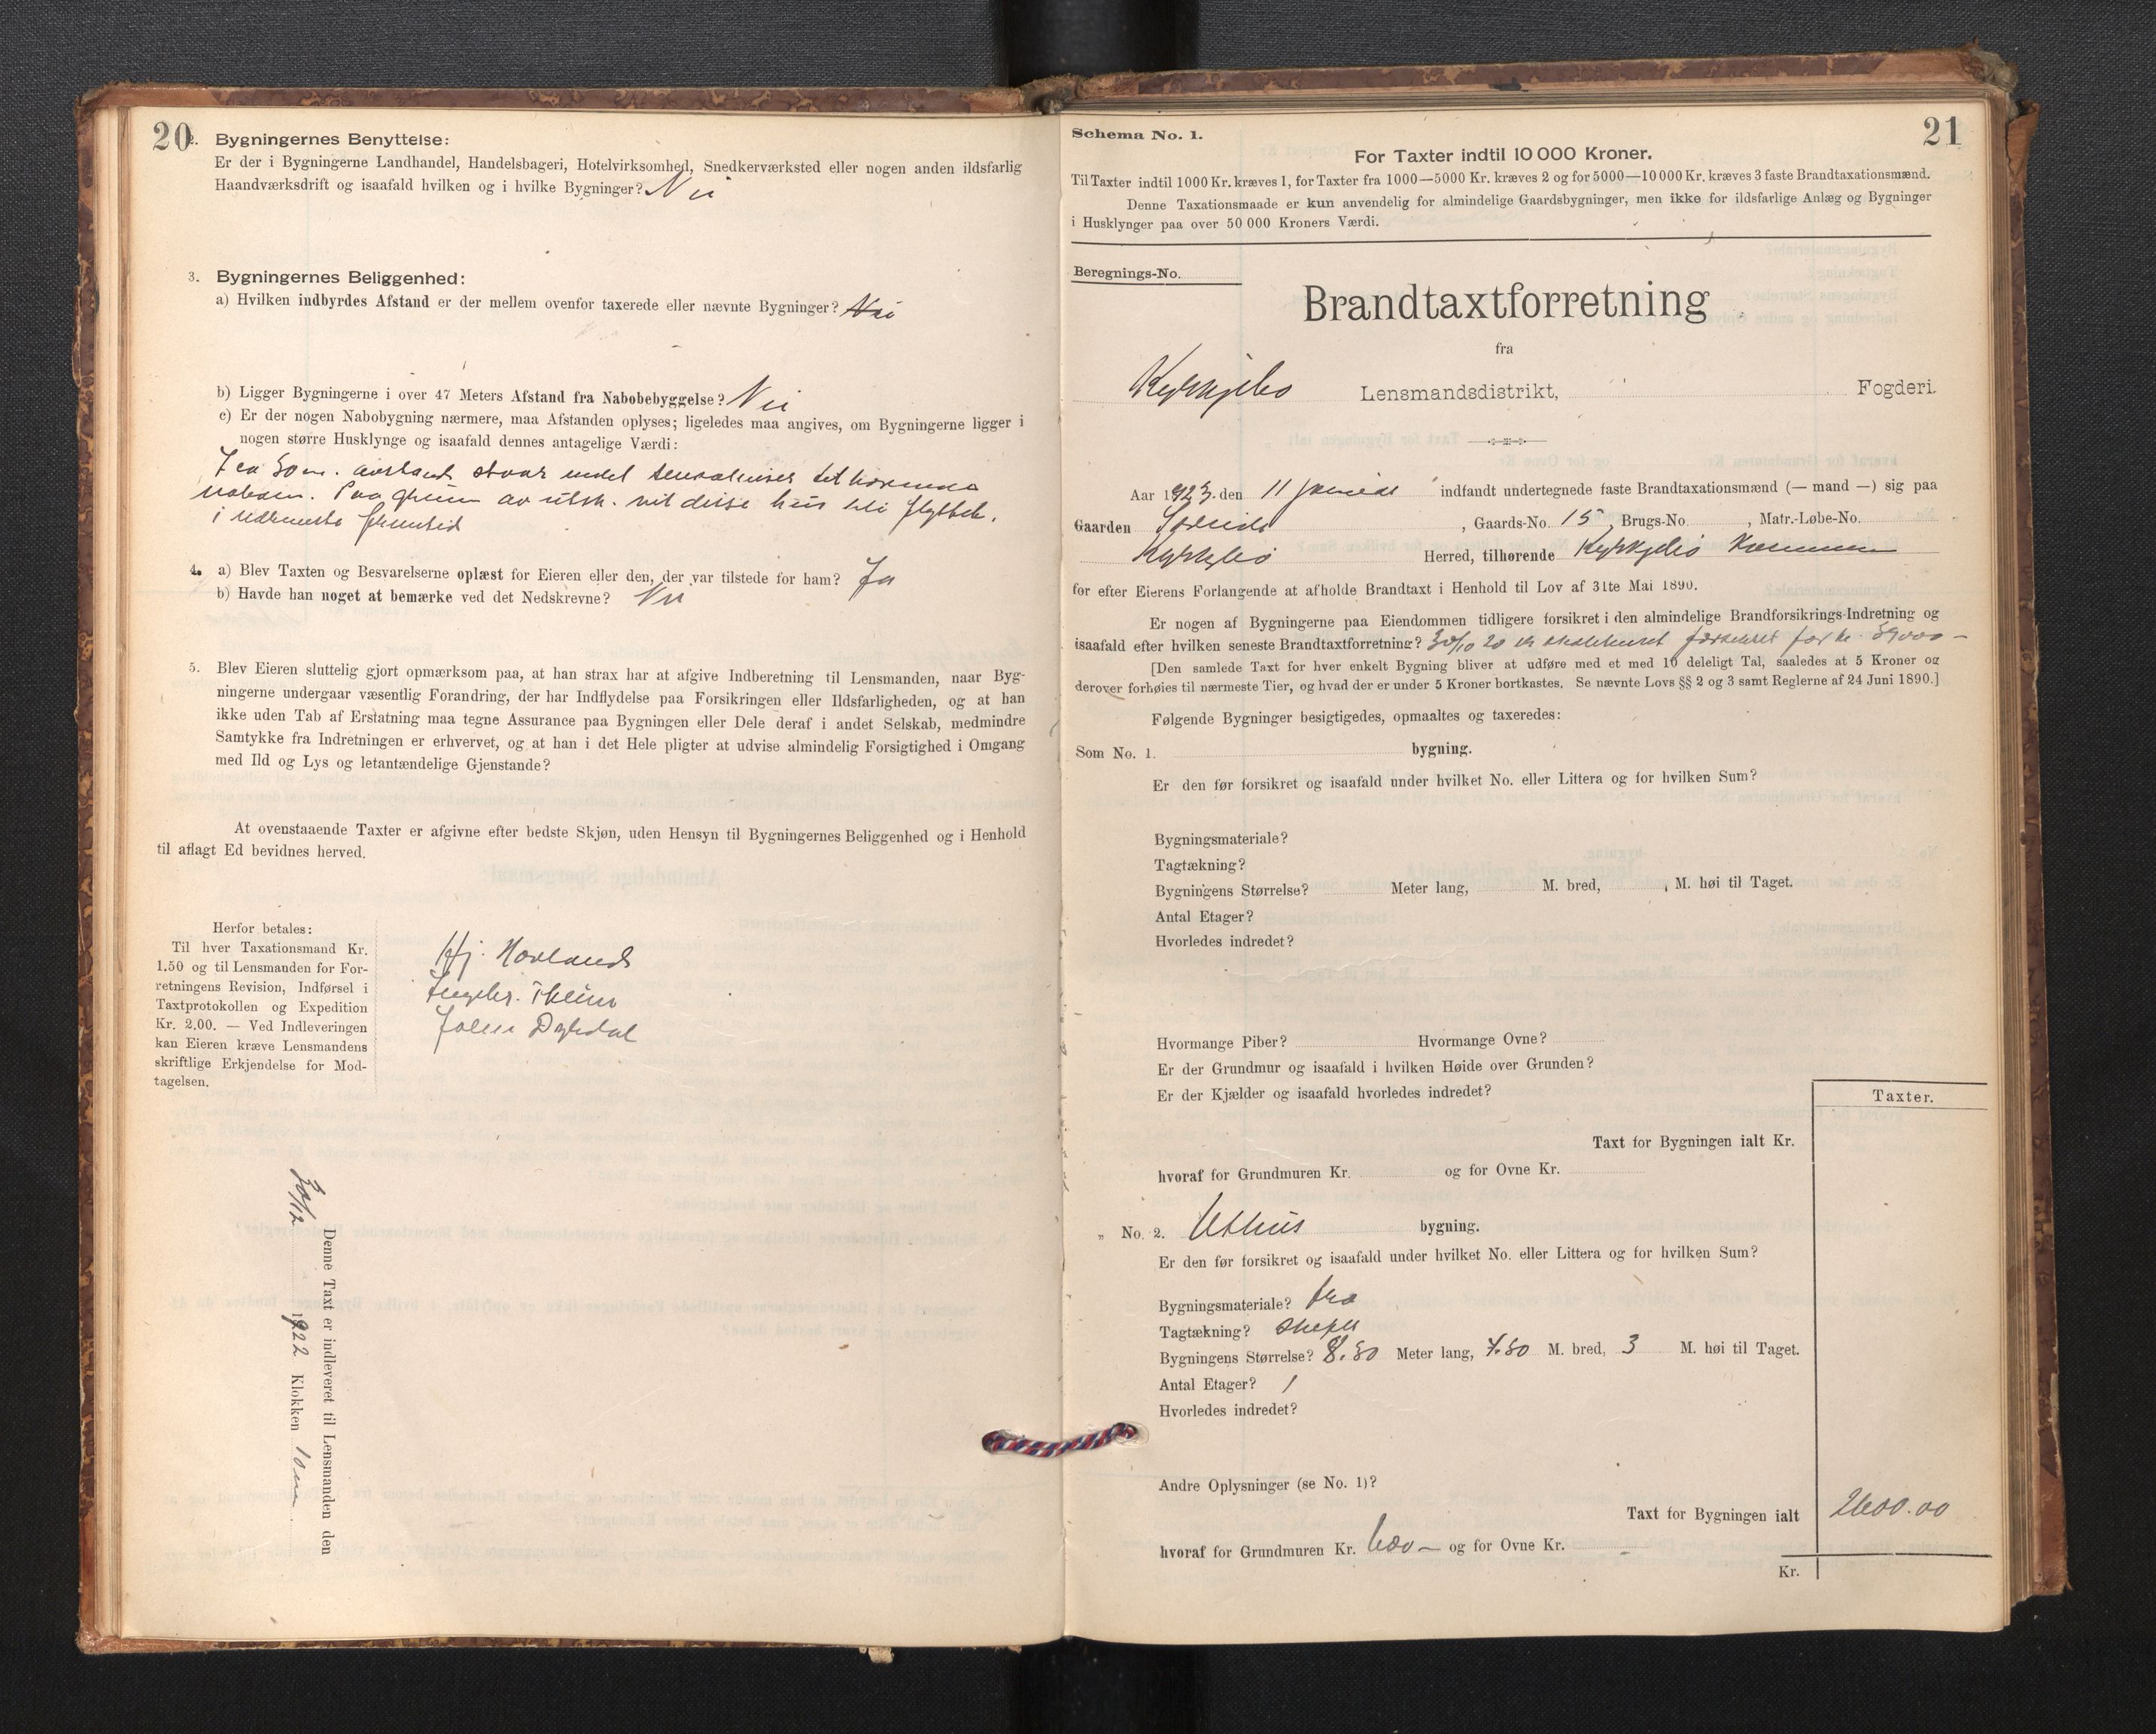 20
2. Bygningernes Benyttelse:
Er der i Bygningerne Landhandel, Handelsbageri, Hotelvirksomhed, Snedkerværksted eller nogen anden ildsfarlig
Haandværksdrift og isaafald hvilken og i hvilke Bygninger? Nei
3. Bygningernes Beliggenhed:
a) Hvilken indbyrdes Afstand er der mellem ovenfor taxerede eller nævnte Bygninger? Nei
b) Ligger Bygningerne i over 47 Meters Afstand fra Nabobebyggelse? Nei
c) Er der nogen Nabobygning nærmere, maa Afstanden oplyses; ligeledes maa angives, om Bygningerne ligger i
nogen større Husklynge og isaafald dennes antagelige Værdi:
I ca 30 m. avstand staar endel
naboen. Paa grunn av utsk. vil disse hus bli flyttet.
i nærmeste fremtid
4. a) Blev Taxten og Besvarelserne oplæst for Eieren eller den, der var tilstede for ham? Ja
b) Havde han noget at bemærke ved det Nedskrevne? Nei
5. Blev Eieren sluttelig gjort opmærksom paa, at han strax har at afgive Indberetning til Lensmanden, naar Byg-
ningerne undergaar væsentlig Forandring, der har Indflydelse paa Forsikringen eller Ildsfarligheden, og at han
ikke uden Tab af Erstatning maa tegne Assurance paa Bygningen eller Dele deraf i andet Selskab, medmindre
Samtykke fra Indretningen er erhvervet, og at han i det Hele pligter at udvise almindelig Forsigtighed i Omgang
med Ild og Lys og letantændelige Gjenstande?
At ovenstaaende Taxter er afgivne efter bedste Skjøn, uden Hensyn til Bygningernes Beliggenhed og i Henhold
til aflagt Ed bevidnes herved.
Herfor betales:
Til hver Taxationsmand Kr.
1.50 og til Lensmanden for For-
retningens Revision, Indførsel i
Taxtprotokollen og Expedition
Kr. 2.00. — Ved Indleveringen
kan Eieren kræve Lensmandens
skriftlige Erkjendelse for Mod-
tagelsen.
Hj. Hovland
Ingebr. Theim
Johan Dykdal
Denne Taxt er indleveret til Lensmanden den
30/12 1922 Klokken 10
Schema No. 1.
21
For Taxter indtil 10 000 Kroner.
Til Taxter indtil 1000 Kr. kræves 1, for Taxter fra 1000—5000 Kr. kræves 2 og for 5000—10 000 Kr. kræves 3 faste Brandtaxationsmænd.
Denne Taxationsmaade er kun anvendelig for almindelige Gaardsbygninger, men ikke for ildsfarlige Anlæg og Bygninger
i Husklynger paa over 50 000 Kroners Værdi.
Beregnings-No.
Brandtaxtforretning
fra
Kyrkjebø Lensmandsdistrikt, Fogderi.
Aar 1923. den 11 januar indfandt undertegnede faste Brandtaxationsmænd (— mand —) sig paa
Gaarden , Gaards-No. 15, Brugs-No. , Matr.-Løbe-No.
Kyrkjebø Herred, tilhørende Kyrkjebø Kommune
for efter Eierens Forlangende at afholde Brandtaxt i Henhold til Lov af 31te Mai 1890.
Er nogen af Bygningerne paa Eiendommen tidligere forsikret i den almindelige Brandforsikrings-Indretning og
isaafald efter hvilken seneste Brandtaxtforretning? 30/10 20 er skolehuset forsikret for kr. 39000 —
[Den samlede Taxt for hver enkelt Bygning bliver at udføre med et med 10 deleligt Tal, saaledes at 5 Kroner og
derover forhøies til nærmeste Tier, og hvad der er under 5 Kroner bortkastes. Se nævnte Lovs §§ 2 og 3 samt Reglerne af 24 Juni 1890.]
Følgende Bygninger besigtigedes, opmaaltes og taxeredes:
Som No. 1. bygning.
Er den før forsikret og isaafald under hvilket No. eller Littera og for hvilken Sum?
Bygningsmateriale?
Tagtækning?
Bygningens Størrelse? Meter lang, M. bred, M. høi til Taget.
Antal Etager?
Hvorledes indredet?
Hvormange Piber? Hvormange Ovne?
Er der Grundmur og isaafald i hvilken Høide over Grunden?
Er der Kjælder og isaafald hvorledes indredet?
Taxter.
Taxt for Bygningen ialt Kr.
hvoraf for Grundmuren Kr. og for Ovne Kr.
„ No. 2. Uthus bygning.
Er den før forsikret og isaafald under hvilket No. eller Littera og for hvilken Sum?
Bygningsmateriale? træ
Tagtækning? skifer
Bygningens Størrelse? 8.50 Meter lang, 4.50 M. bred, 3 M. høi til Taget.
Antal Etager? 1
Hvorledes indredet?
Andre Oplysninger (se No. 1)?
Taxt for Bygningen ialt 2600.00
hvoraf for Grundmuren Kr. 600 — og for Ovne Kr. –
Kr.